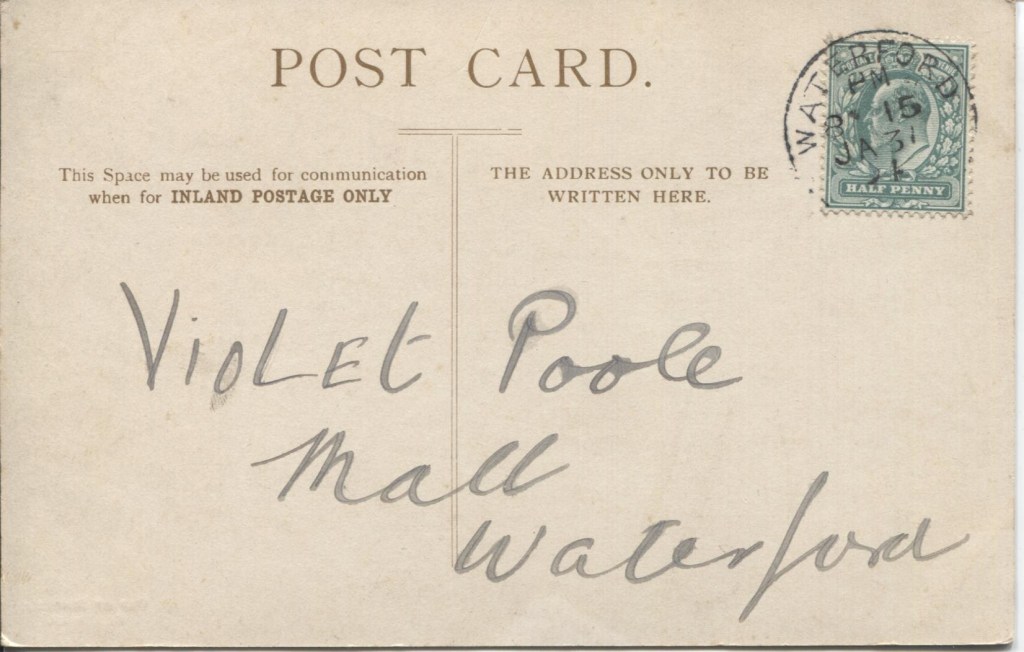 POST CARD.
This Space may be used for communication
when for INLAND POSTAGE ONLY
THE ADDRESS ONLY TO BE
WRITTEN HERE.
WATERFORD
PM
8 15
JA 31
HALF PENNY
Violet Poole
Mall
Waterford